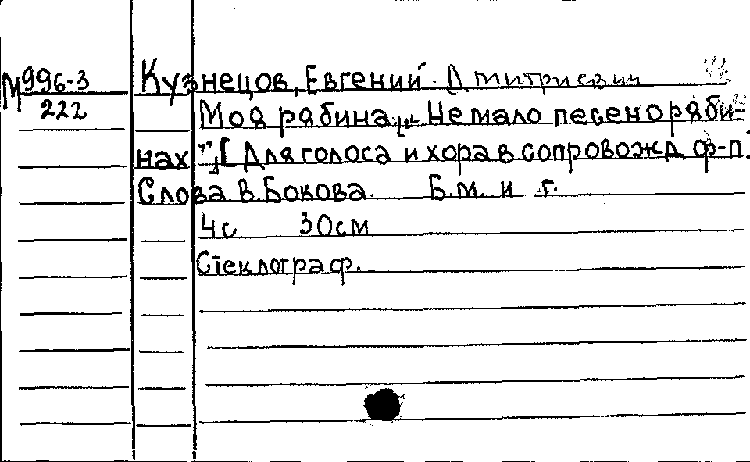 М 996-3
222
Кузнецов, Евгений Дмитриевич
Моя рябина „ Немало песен о ряби-
нах ", [ Для голоса и хора в сопровожд. ф-п.
Слова В. Бокова. Б.м. и г.
4 с 30 см
Стеклограф.